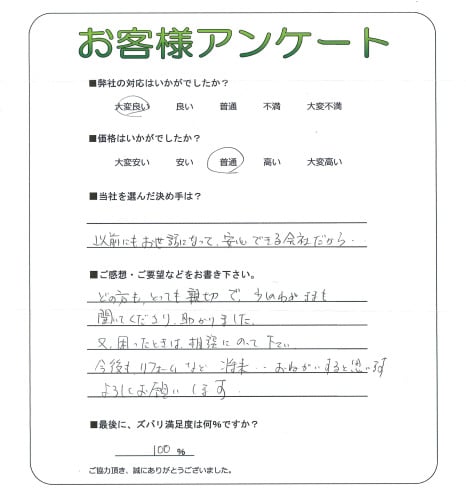 お客様アンケート
■弊社の対応はいかがでしたか?
大変良い 良い 普通 不満 大変不満
■価格はいかがでしたか?
大変安い 安い 普通 高い 大変高い
■当社を選んだ決め手は?
以前にもお世話になって、安心できる会社だから.
■ご感想・ご要望などをお書き下さい。
どの方も、とても親切で、うちのわがままも
聞いてくださり、助かりました。
又、困ったときは、相談にのって下さい
今後も、リフォームなど 将来・・おねがいすると思います
よろしくお願いします
■最後に、ズバリ満足度は何%ですか?
100 %
ご協力頂き、誠にありがとうございました。